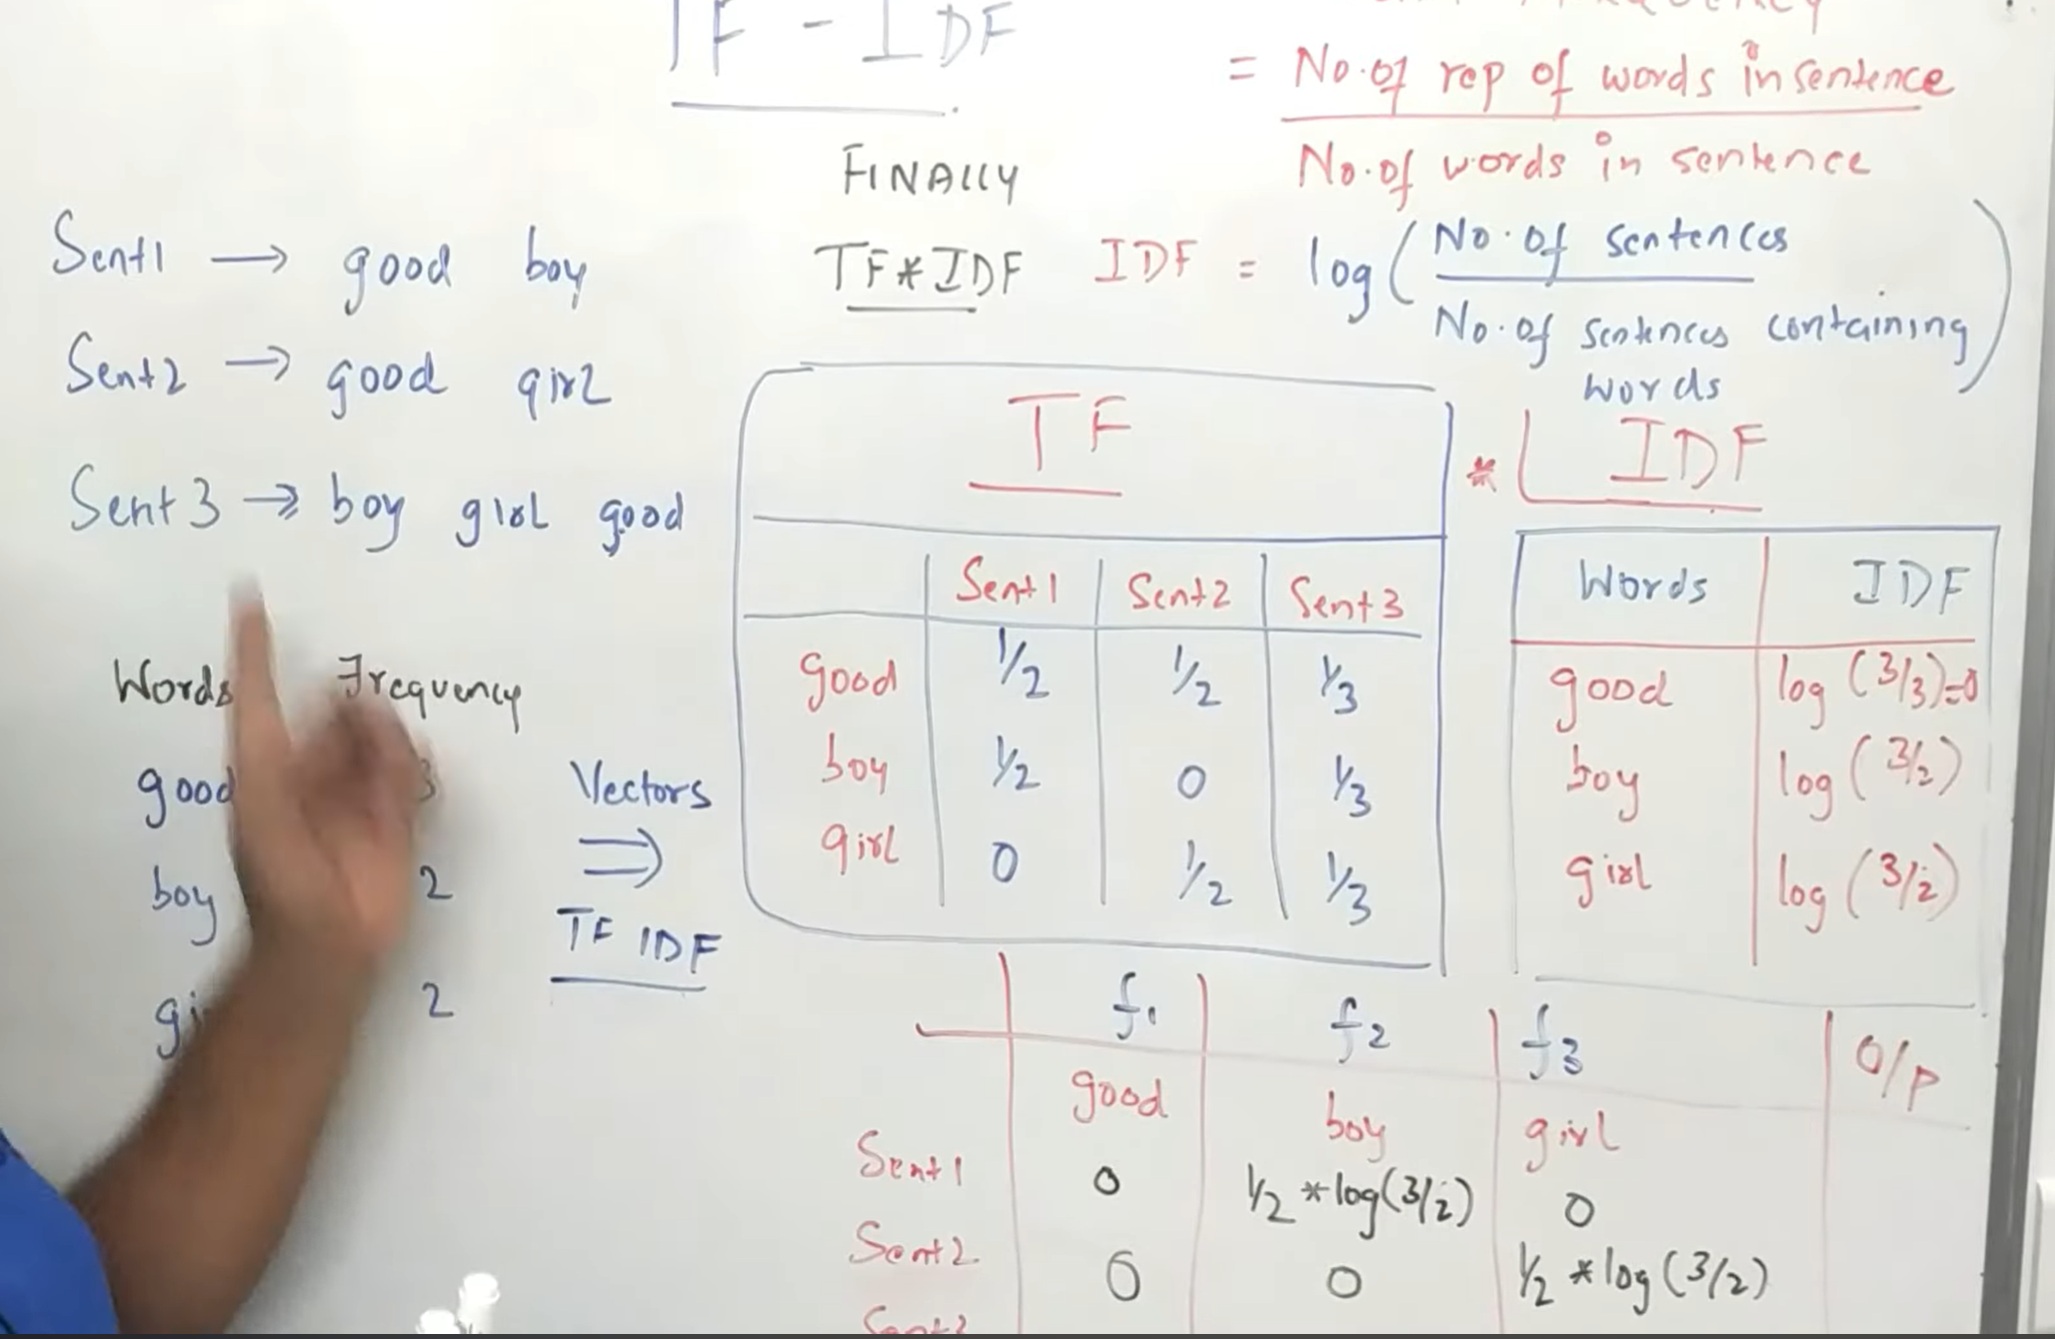 TF - IDF
= No. of rep of words in sentence
No. of words in sentence
FINALLY
TF*IDF
IDF = log ( No. of sentences
No. of sentences containing
words )
Sent1 → good boy
Sent2 → good girl
Sent3 → boy girl good
Words Frequency
good 3
boy 2
2
Vectors
⇒
TF IDF
TF
Sent1 Sent2 Sent3
good 1/2 1/2 1/3
boy 1/2 0 1/3
girl 0 1/2 1/3
* IDF
Words IDF
good log (3/3)=0
boy log (3/2)
girl log (3/2)
f1 f2 f3 O/P
good boy girl
Sent1 0 1/2 *log(3/2) 0
Sent2 0 0 1/2 *log(3/2)